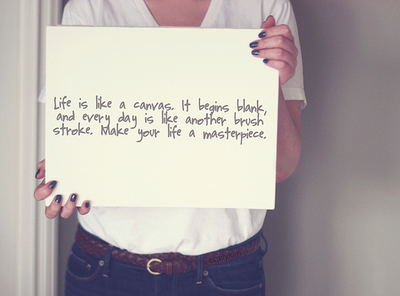 Life is like a canvas. It begins blank,
and every day is like another brush
stroke. Make your life a masterpiece.